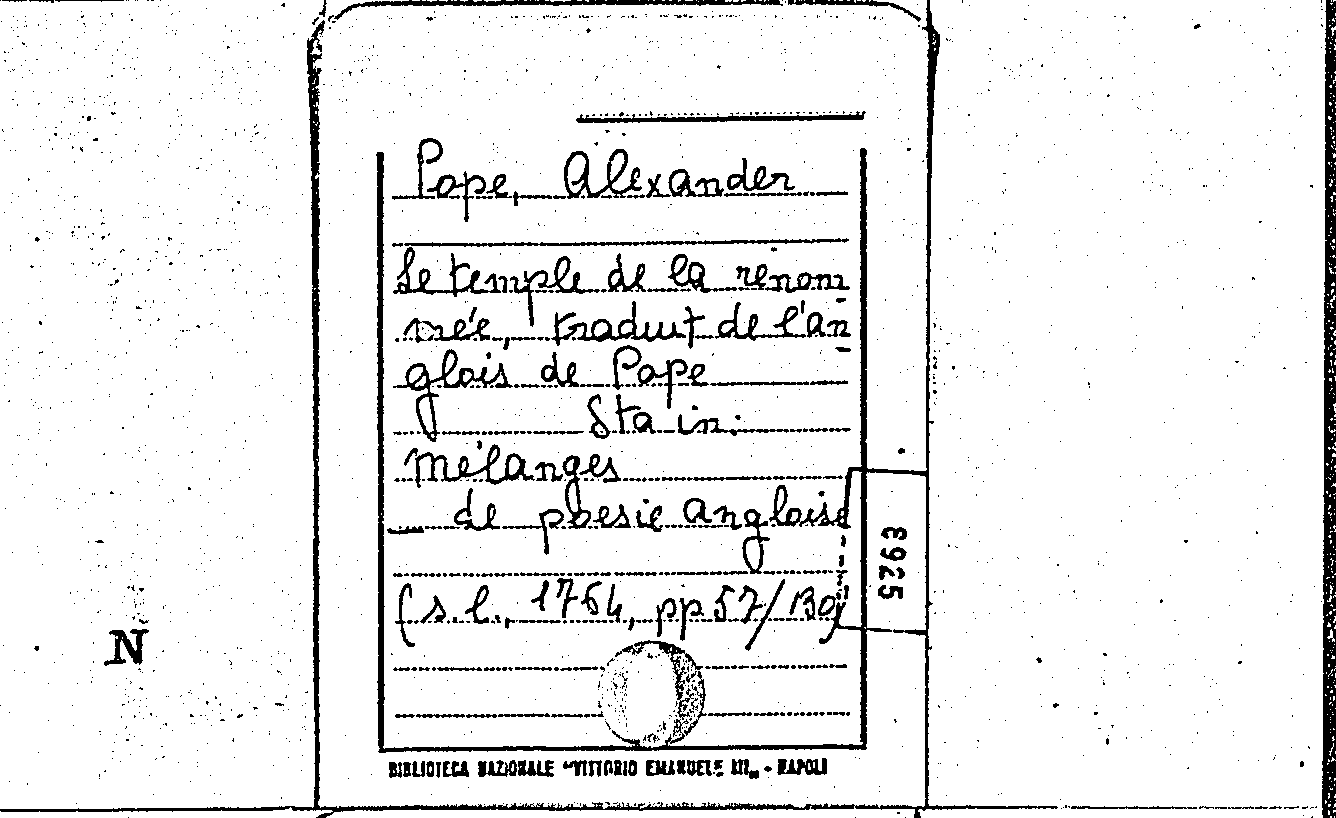 Pope, Alexander
Le temple de la renom-
mée, traduit de l'an-
glois de Pope
Sta in:
Mélanges
... de poesie angloise
(s.l., 1764, pp 57/130)
8925
N
BIBLIOTECA NAZIONALE "VITTORIO EMANUELE III" - NAPOLI